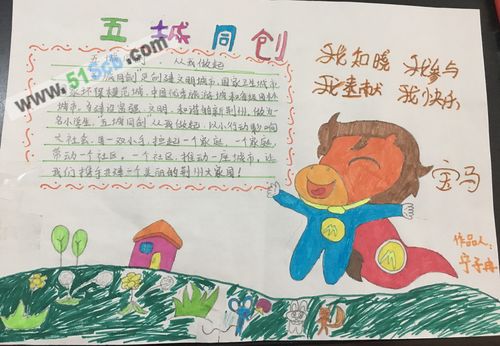 五城同创
从我做起
五城同创是创建文明城市，国家卫生城市
国家环保模范城，中国优秀旅游城和省级园林
城市，
小学生，五城同创从我做起，以小行动影响
大社会，用一双小手，托起一个家庭，一个家庭，
带动一个社区，一个社区，推动一座城市，让
我们携手共建一个美丽的荆州大家园！
我知晓 我参与
我奉献 我快乐
宝马
作品人：
www.
.com